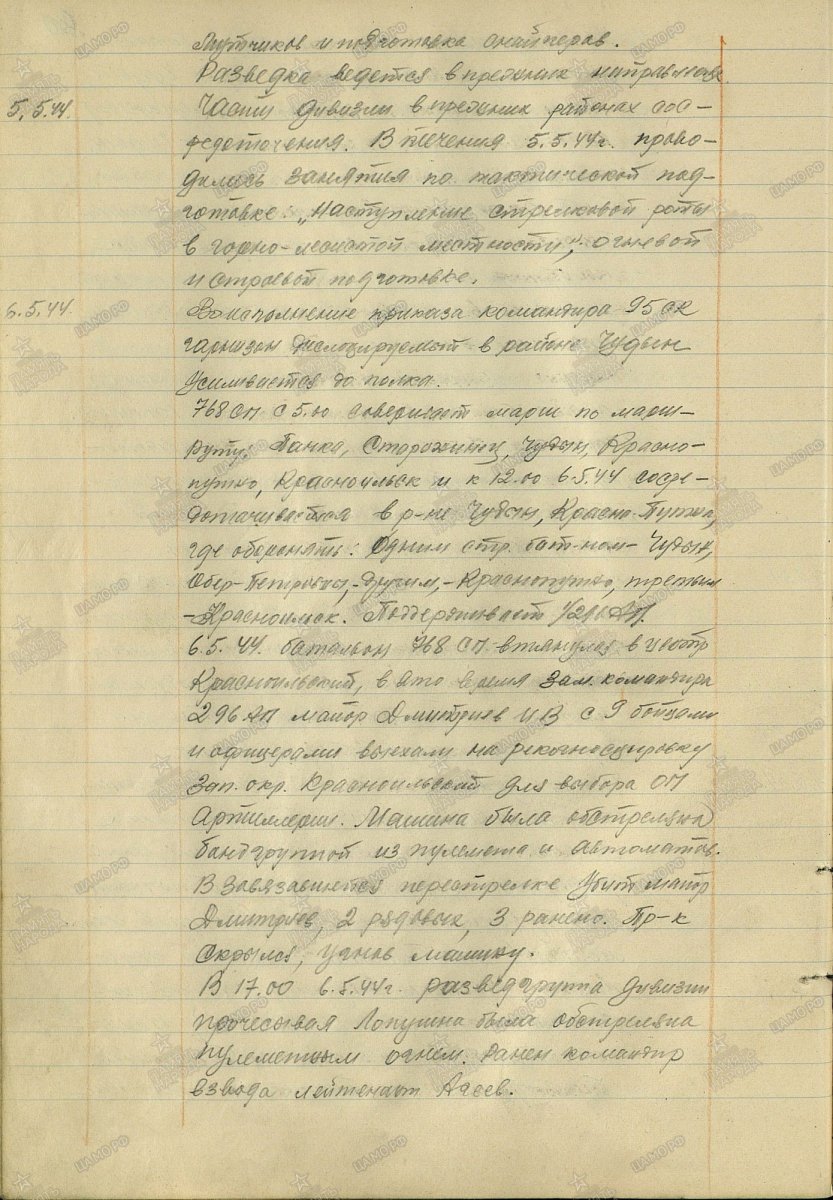 лутчиков и подготовка снайперов.
Разведка ведется в прежних направлениях
5.5.44. Части дивизии в прежних районах сос-
редоточения. В течения 5.5.44г. прово-
дились занятия по тактической под-
готовке: „Наступление стрелковой роты
в горно-лесистой местности", огневой
и строевой подготовке.
6.5.44. Во исполнение приказа командира 95 СК
гарнизон дислоцируемый в районе Чудын
усиливается до полка.
768 СП с 5.00 совершает марш по марш-
руту: Панка, Сторожинец, Чудын, Красно-
путно, Красноильск и к 12.00 6.5.44 сосре-
дотачивается в р-не Чудын, Красно-Путна,
где оборонять: Одним стр. бат-ном - Чудын,
Обер-Петровцы, - другим, - Краснопутно, третьим
- Красноильск. Поддерживает 1/296 АП.
6.5.44. батальон 768 СП втянулся в центр
Красноильский, в это время зам. командира
296 АП майор Дмитриев И В с 9 бойцами
и офицерами выехали на рекогносцировку
зап. окр. Красноильский для выбора ОП
Артиллерии. Машина была обстреляна
бандгруппой из пулемета и автоматов.
В завязавшейся перестрелке убит майор
Дмитриев, 2 рядовых, 3 ранено. Пр-к
скрылся, угнав машину.
В 17.00 6.5.44г. разведгруппа дивизии
прочесывая Лопушна была обстреляна
пулеметным огнем. Ранен командир
взвода лейтенант